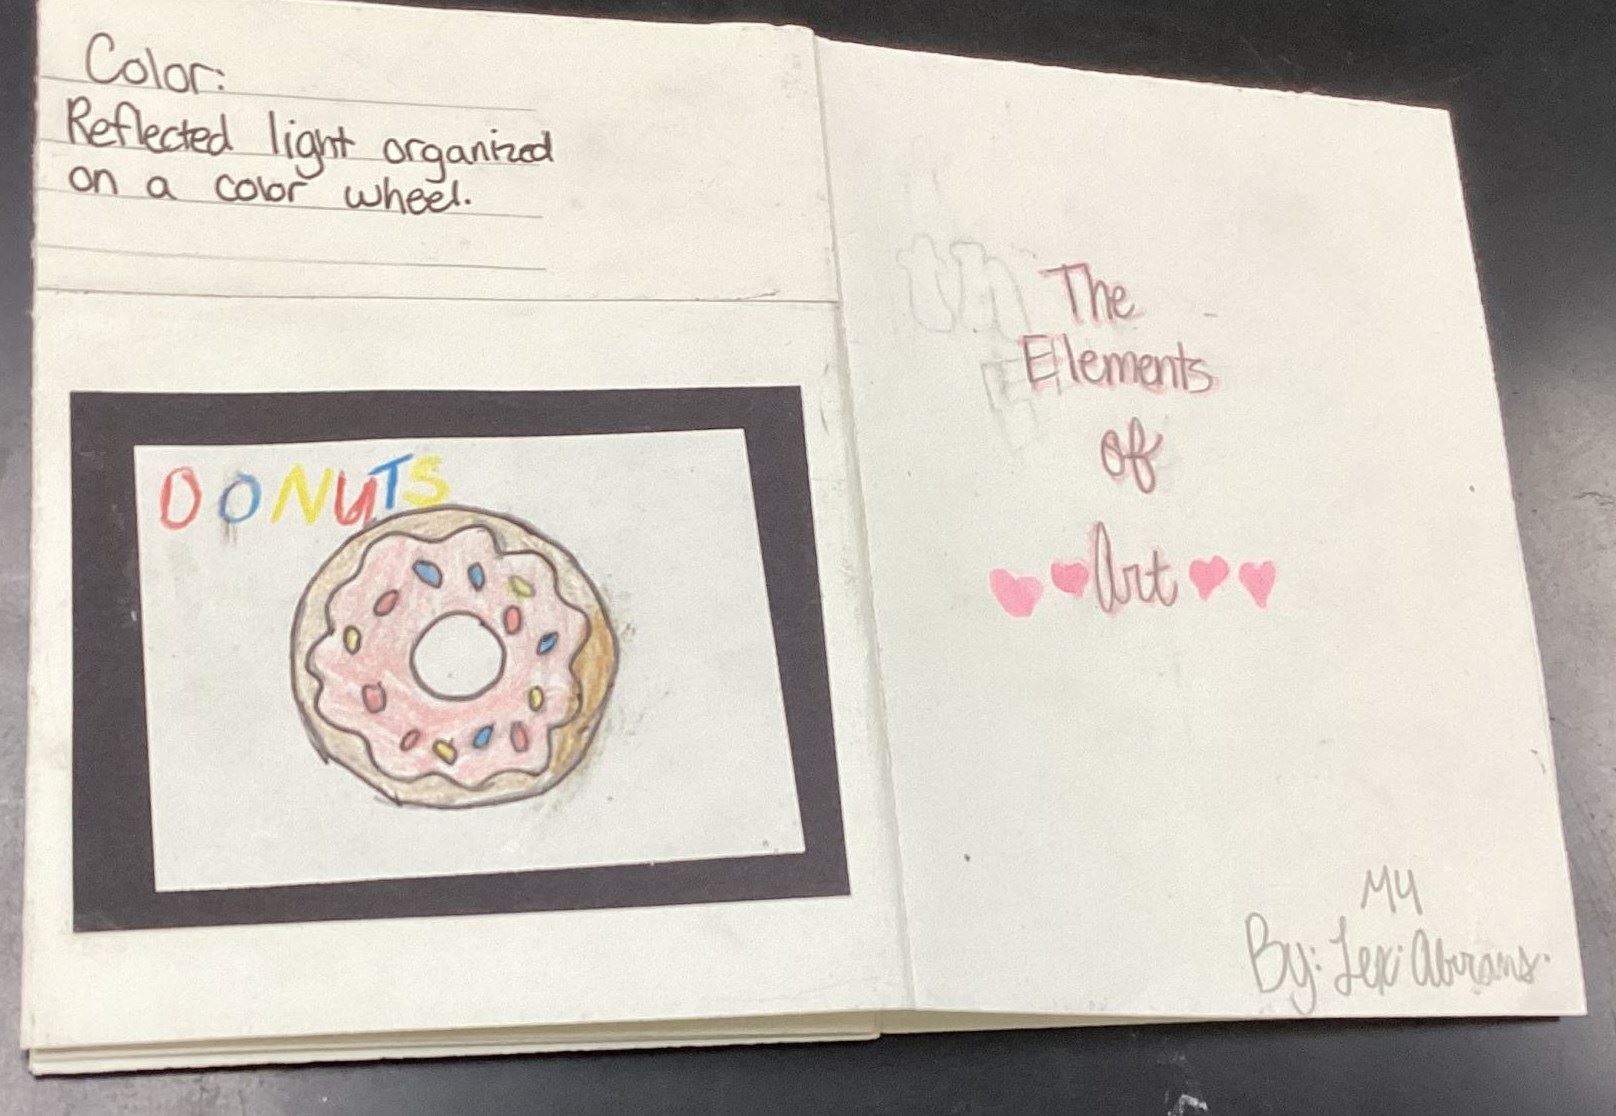 Color:
Reflected light organized
on a color wheel.
DONUTS
The
Elements
of
Art
M4
By: Lexi Abrams.